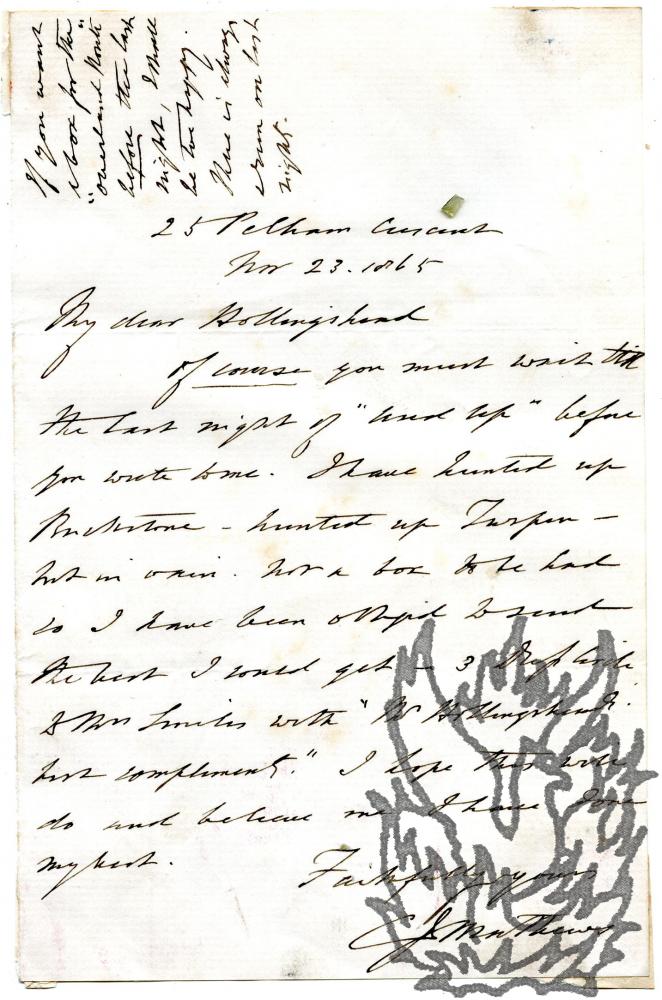 If you want
a box for the
"overland Route"
before the last
night, I shall
be too happy.
There is always
a run on last
night.
25 Pelham Crescent
Nov 23. 1865
My dear Hollingshead
Of course you must wait till
the last night of "Used Up" before
you write to me. I have hunted up
Buckstone - hunted up Turpin -
but in vain. Not a box to be had
so I have been obliged to send
the best I could get - 3 Dress Circle
to Mrs Smiles with "Mr Hollingshead's
best compliments." I hope this will
do and believe me I have done
my best.
Faithfully yours
C J Mathews